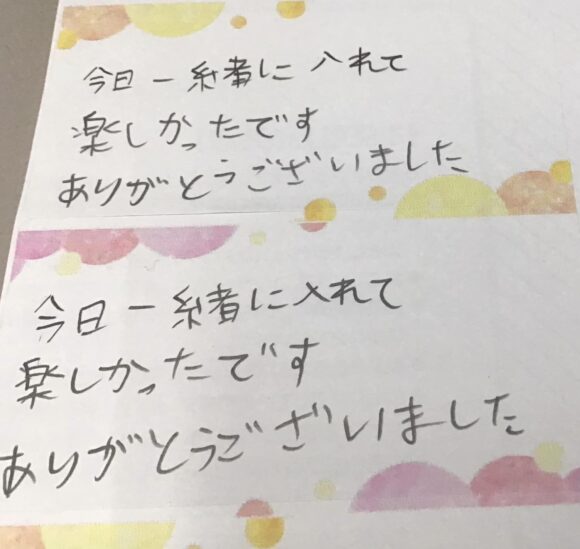 今日一緒に入れて
楽しかったです
ありがとうございました
今日一緒に入れて
楽しかったです
ありがとうございました